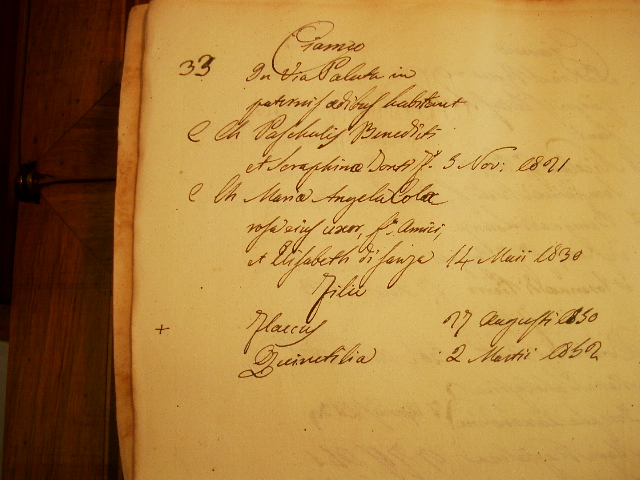 Ciamео
33 In Via Paluta in
paternis ædibus habitant
C Ch Paschalis Benedicti
et Seraphinæ Donti f. 5 Nov: 1821
C Ch Maria Angela Colæ
rosa eius uxor, f. Amici,
et Elisabeth di Sanza 14 Maii 1830
Filii
+ Flaccus 27 Augusti 1850
Quinctilia 2 Martii 1852